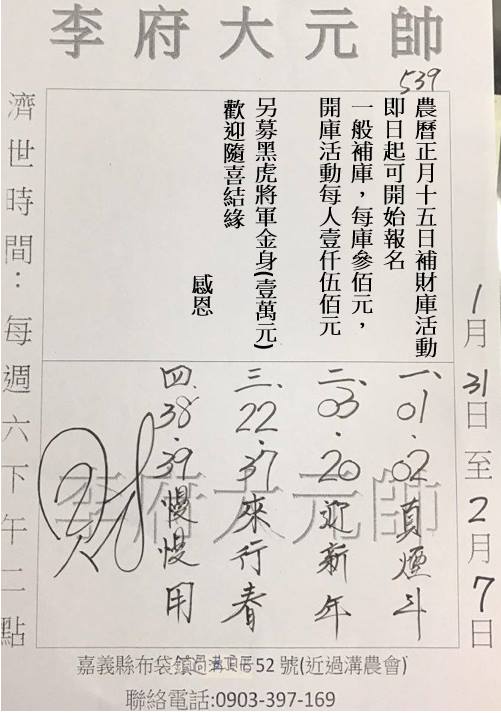 李府大元帥
539
農曆正月十五日補財庫活動
即日起可開始報名
一般補庫，每庫參佰元，
開庫活動每人壹仟伍佰元
另募黑虎將軍金身(壹萬元)
歡迎隨喜結緣
感恩
1月31日至2月7日
一、01.02頁煙斗
二、03.20迎新年
三、22.37來行春
四、38.39慢慢用
李府大元帥
濟世時間：每週六下午二點
嘉義縣布袋鎮 52號(近過溝農會)
聯絡電話:0903-397-169